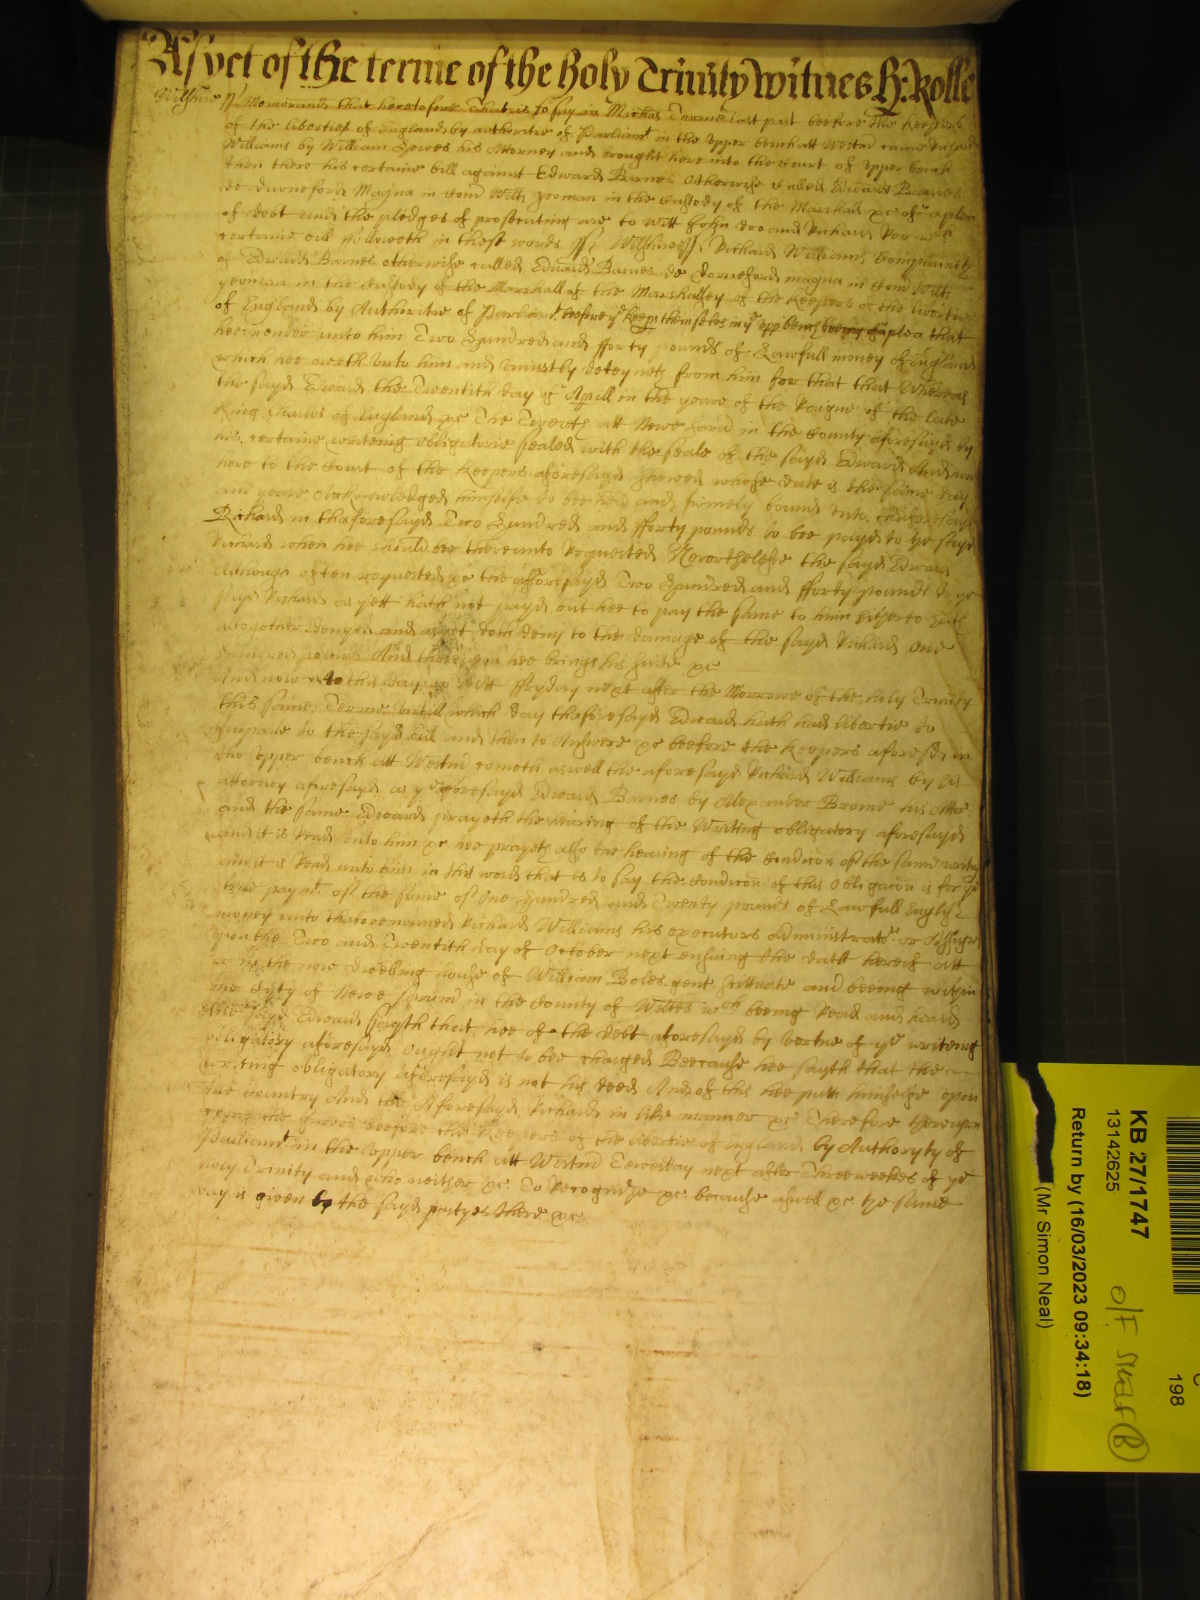 As yet of the terme of the holy Trinity Witnes H: Rolle
Wilshire ss Memorand that heretofore That is to say in Michas Terme last past beefore the Keepers
of the liberties of England by authoritie of Parliamt in the upper bench att Westmr came Richard
Williams by William Hewes his Attorney and brought here into the Court of upper bench
then there his certaine bill against Edward Barnes otherwise called Edward Barnes
de Durneford Magna in Com Wilts yeoman in the Custody of the Marshall &c of a plea
of debt and the pledges of prosecuting are to witt John doo and Richard Roo wch
certaine bill ffolloweth in these words ss Wilshire ss Richard Williams Complaineth
of Edward Barnes otherwise called Edward Barnes de Dorneford magna in Com Wilts
yeoman in the Custody of the Marshall of the Marshalsey of the Keepers of the libertie
of England by Authoritie of Parliamt before ye keeps themselves in ye upp bench beeing of a plea that
hee render unto him Two Hundred and fforty pounds of Lawfull money of England
which hee oweth unto him and uniustly deteyneth from him for that that Whereas
the sayd Edward the Twentith day of Aprill in the yeare of the Raigne of the late
King Charles of England &c The Twentith att Newe Sarū in the County aforesayd by
his certaine writeing obligatorie sealed with the seale of the sayd Edward And now
here to the Court of the Keepers aforesayd shewed whose date is the same day
and yeare Acknowledged himselfe to bee held and firmely bound unto thaforesayd
Richard in thaforesayd Two Hundred and fforty pounds to bee payd to ye sayd
Richard when hee should bee thereunto Requested Neverthelesse the sayd Edward
although often requested &c the afforesayd Two Hundred and fforty pounds to ye
sayd Richard as yett hath not payd but hee to pay the same to him hitherto hath
altogether denyed and as yet doth deny to the damage of the sayd Richard One
Hundred pounds And thereupon hee brings his suite &c
And now to this day to witt ffryday next after the Morrowe of the holy Trinity
this same Terme untill which day thaforesayd Edward hath had libertie to
Imparle to the sayd bill and then to Answere &c beefore the Keepers aforesd in
the upper bench att Westmr cometh aswell the aforesayd Richard Williams by his
attorney aforesayd as ye aforesayd Edward Barnes by Alexander Brome his Attor
and the same Edward prayeth the hearing of the Writing obligatory aforesayd
and it is Read unto him &c hee prayeth also the hearing of the Condicon of the same writing
and it is Read unto him in this words that is to say the Condicon of this Obligacon is for ye
true paymt of the some of One Hundred and Twenty pounds of Lawfull English
money unto thabovenamed Richard Williams his executors administratrs or Assignes
upon the Two and Twentith day of October next ensuing the date hereof att
or in the now dwelling house of William Boles gent scittuate and beeing within
the Cyty of Newe Sarum in the County of Wiltes wch beeing Read and heard
the sayd Edward sayth that hee of the debt aforesayd by vertue of ye writeing
obligatory aforesayd Ought not to bee charged Beecause hee sayth that the
writing obligatory aforesayd is not his deed And of this hee putts himselfe upon
the Country And the Aforesayd Richard in like manner &c Therefore thereupon
come the Jurors beefore the Keepers of the libertie of England by Authoryty of
Parliamt in the upper bench att Westmr Tewesday next after Three weekes of ye
holy Trinity and who neither &c To Recognize &c because aswell &c the same
day is given to the sayd partyes there &c
KB 27/1747
13142625
Return by (16/03/2023 09:34:18)
(Mr Simon Neal)
198